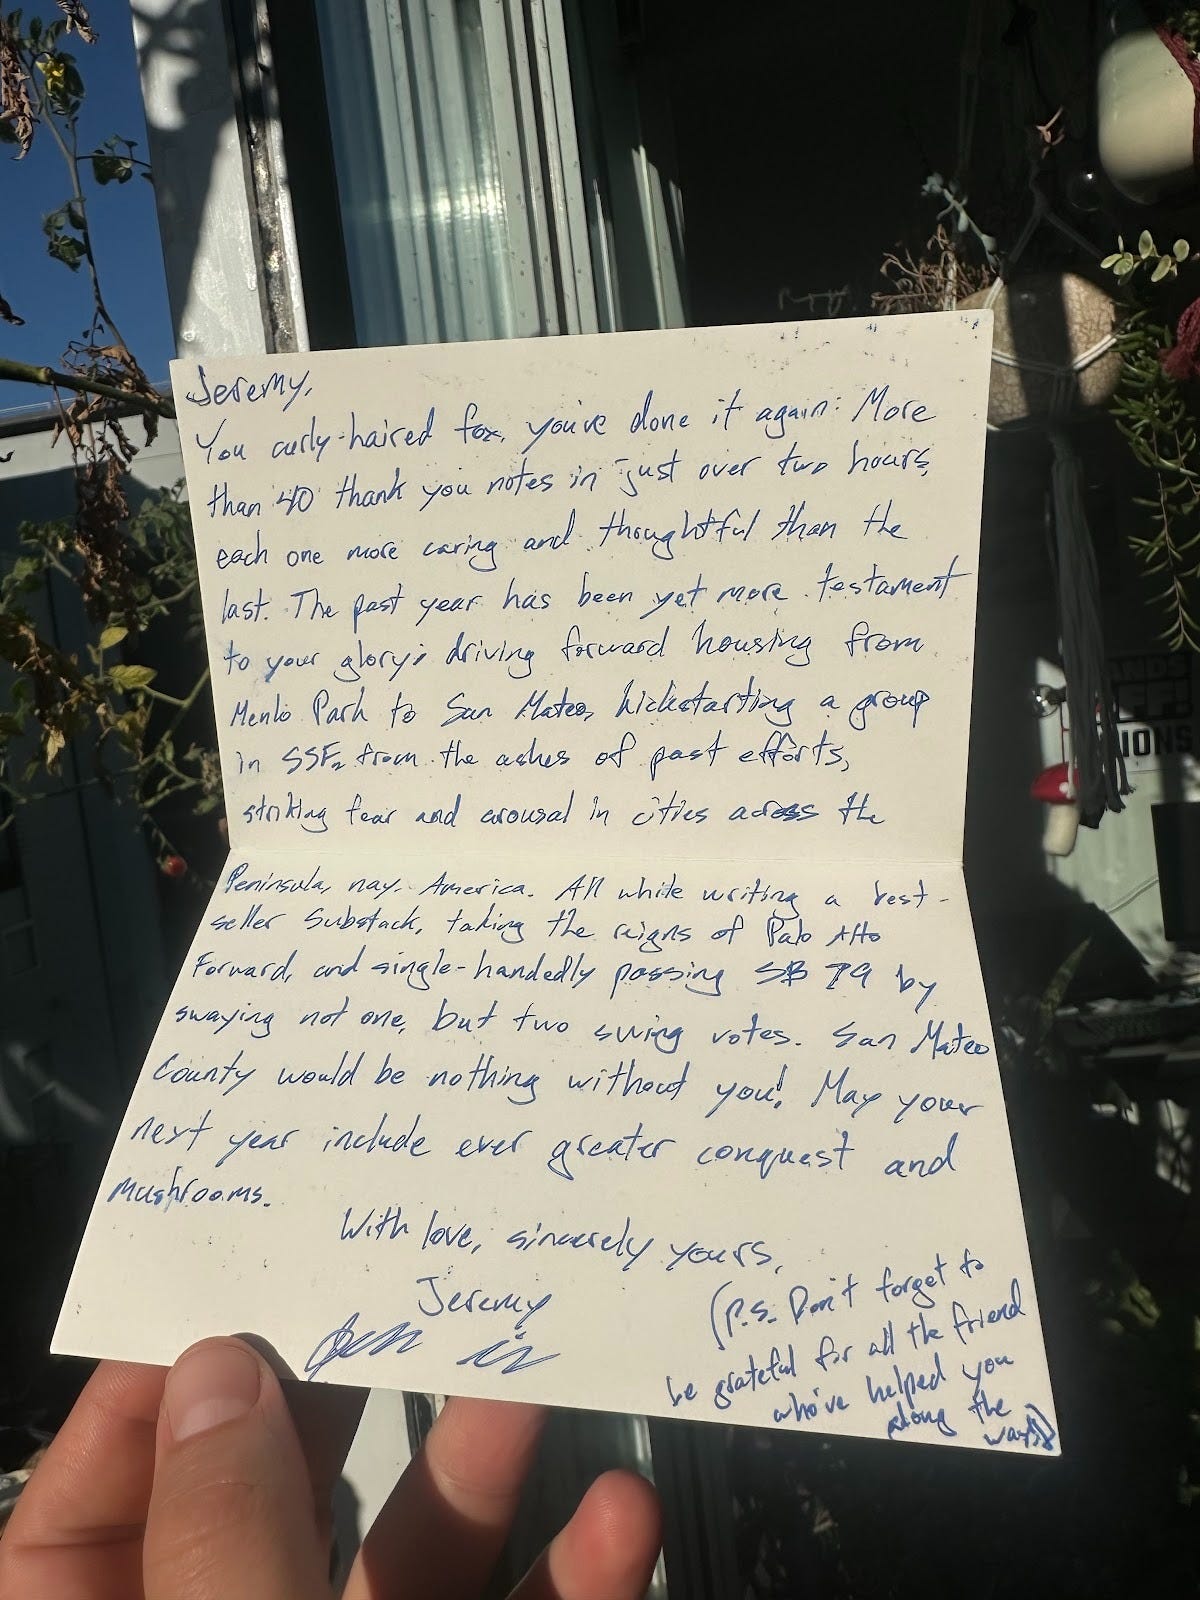 Jeremy,
You curly-haired fox, you've done it again: More
than 40 thank you notes in just over two hours,
each one more caring and thoughtful than the
last. The past year has been yet more testament
to your glory: driving forward housing from
Menlo Park to San Mateo, kickstarting a group
in SSF, from the ashes of past efforts,
striking fear and arousal in cities across the
Peninsula, nay, America. All while writing a best-
seller Substack, taking the reigns of Palo Alto
Forward, and single-handedly passing SB 79 by
swaying not one, but two swing votes. San Mateo
County would be nothing without you! May your
next year include ever greater conquest and
mushrooms.
With love, sincerely yours,
Jeremy
(P.S. Don't forget to
be grateful for all the friend
who've helped you
along the
way)
ANDS
OFF!
IONS